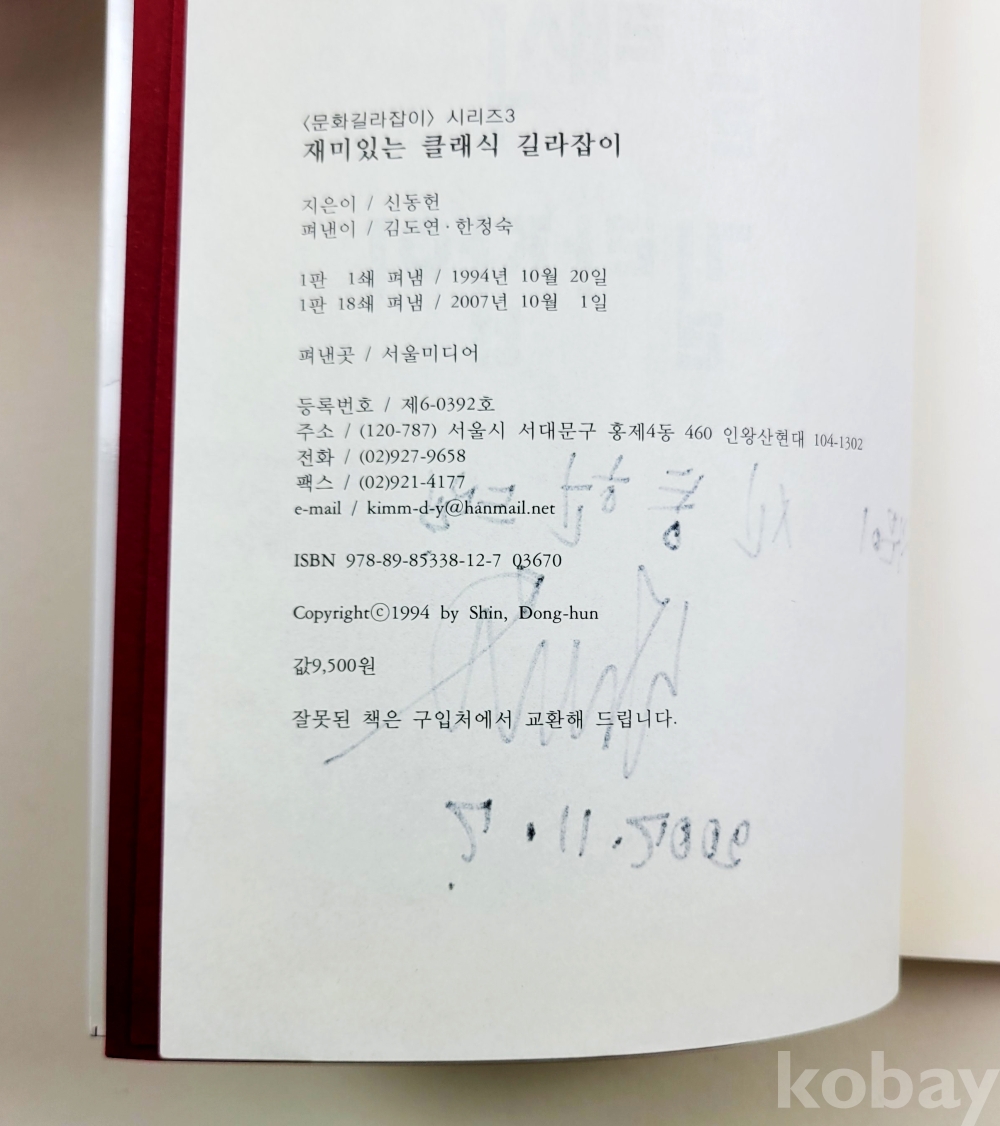 〈문화길라잡이〉 시리즈3
재미있는 클래식 길라잡이
지은이 / 신동헌
펴낸이 / 김도연·한정숙
1판 1쇄 펴냄 / 1994년 10월 20일
1판 18쇄 펴냄 / 2007년 10월 1일
펴낸곳 / 서울미디어
등록번호 / 제6-0392호
주소 / (120-787) 서울시 서대문구 홍제4동 460 인왕산현대 104-1302
전화 / (02)927-9658
팩스 / (02)921-4177
e-mail / kimm-d-y@hanmail.net
ISBN 978-89-85338-12-7 03670
Copyrightⓒ1994 by Shin, Dong-hun
값9,500원
잘못된 책은 구입처에서 교환해 드립니다.
kobay